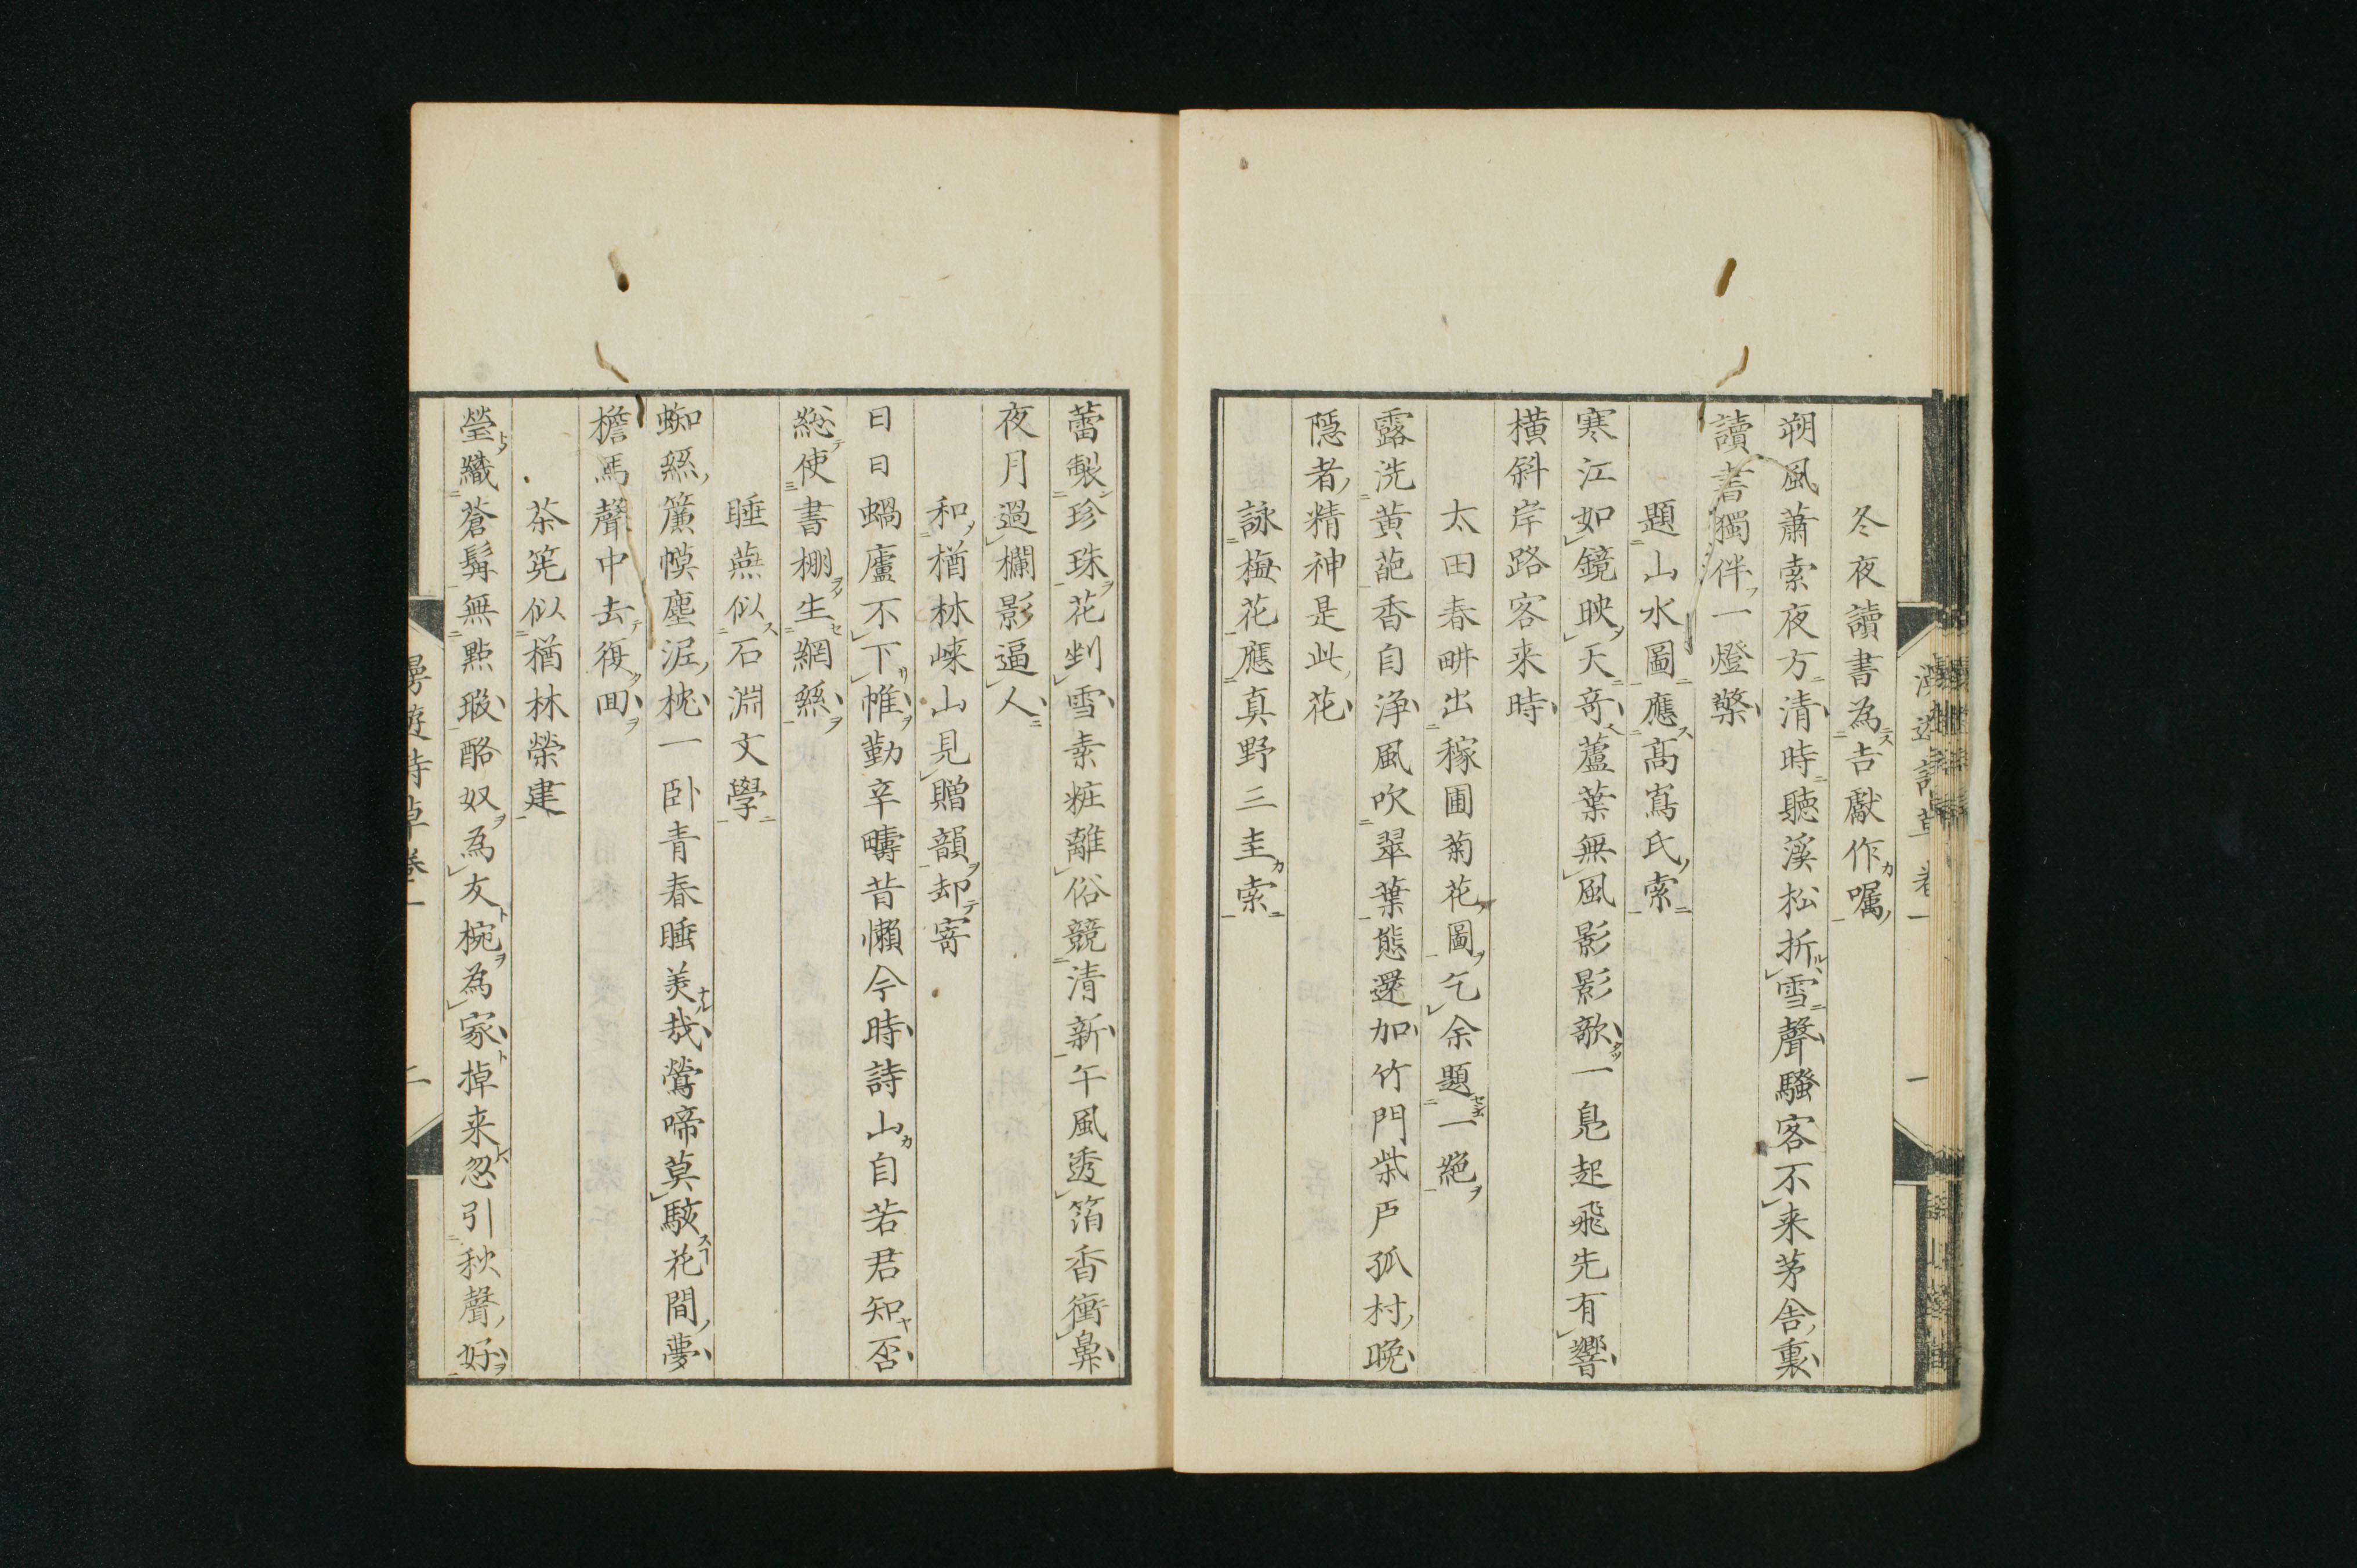 冬夜讀書為吉獻作囑
朔風蕭索夜方清時聽溪松折雪聲騷客不来茅舎裏
讀書獨伴一燈檠
題山水圖應髙寫氏索
寒江如鏡映天奇蘆葉無風影影欹一鳧起飛先有響
横斜岸路客来時
太田春畊出稼圃菊花圖乞余題一絶
露洗黄葩香自浄風吹翠葉態還加竹門柴戸孤村晩
隱者精神是此花
詠梅花應真野三圭索
蕾製珍珠花剉雪素粧離俗競清新午風透箔香衝鼻
夜月過欄影逼人
和楢林崍山見贈韻却寄
日日蝸廬不下帷勤辛疇昔懶今時詩山自若君知否
総使書棚生網絲
睡燕似石淵文學
蜘絲簾幙塵泥枕一卧青春睡美哉鶯啼莫駭花間夢
檐馬聲中去復回
茶筅似楢林榮建
瑩纎蒼髯無點瑕酪奴為友椀為家掉来忽引秋聲好
漫遊詩草巻一
二